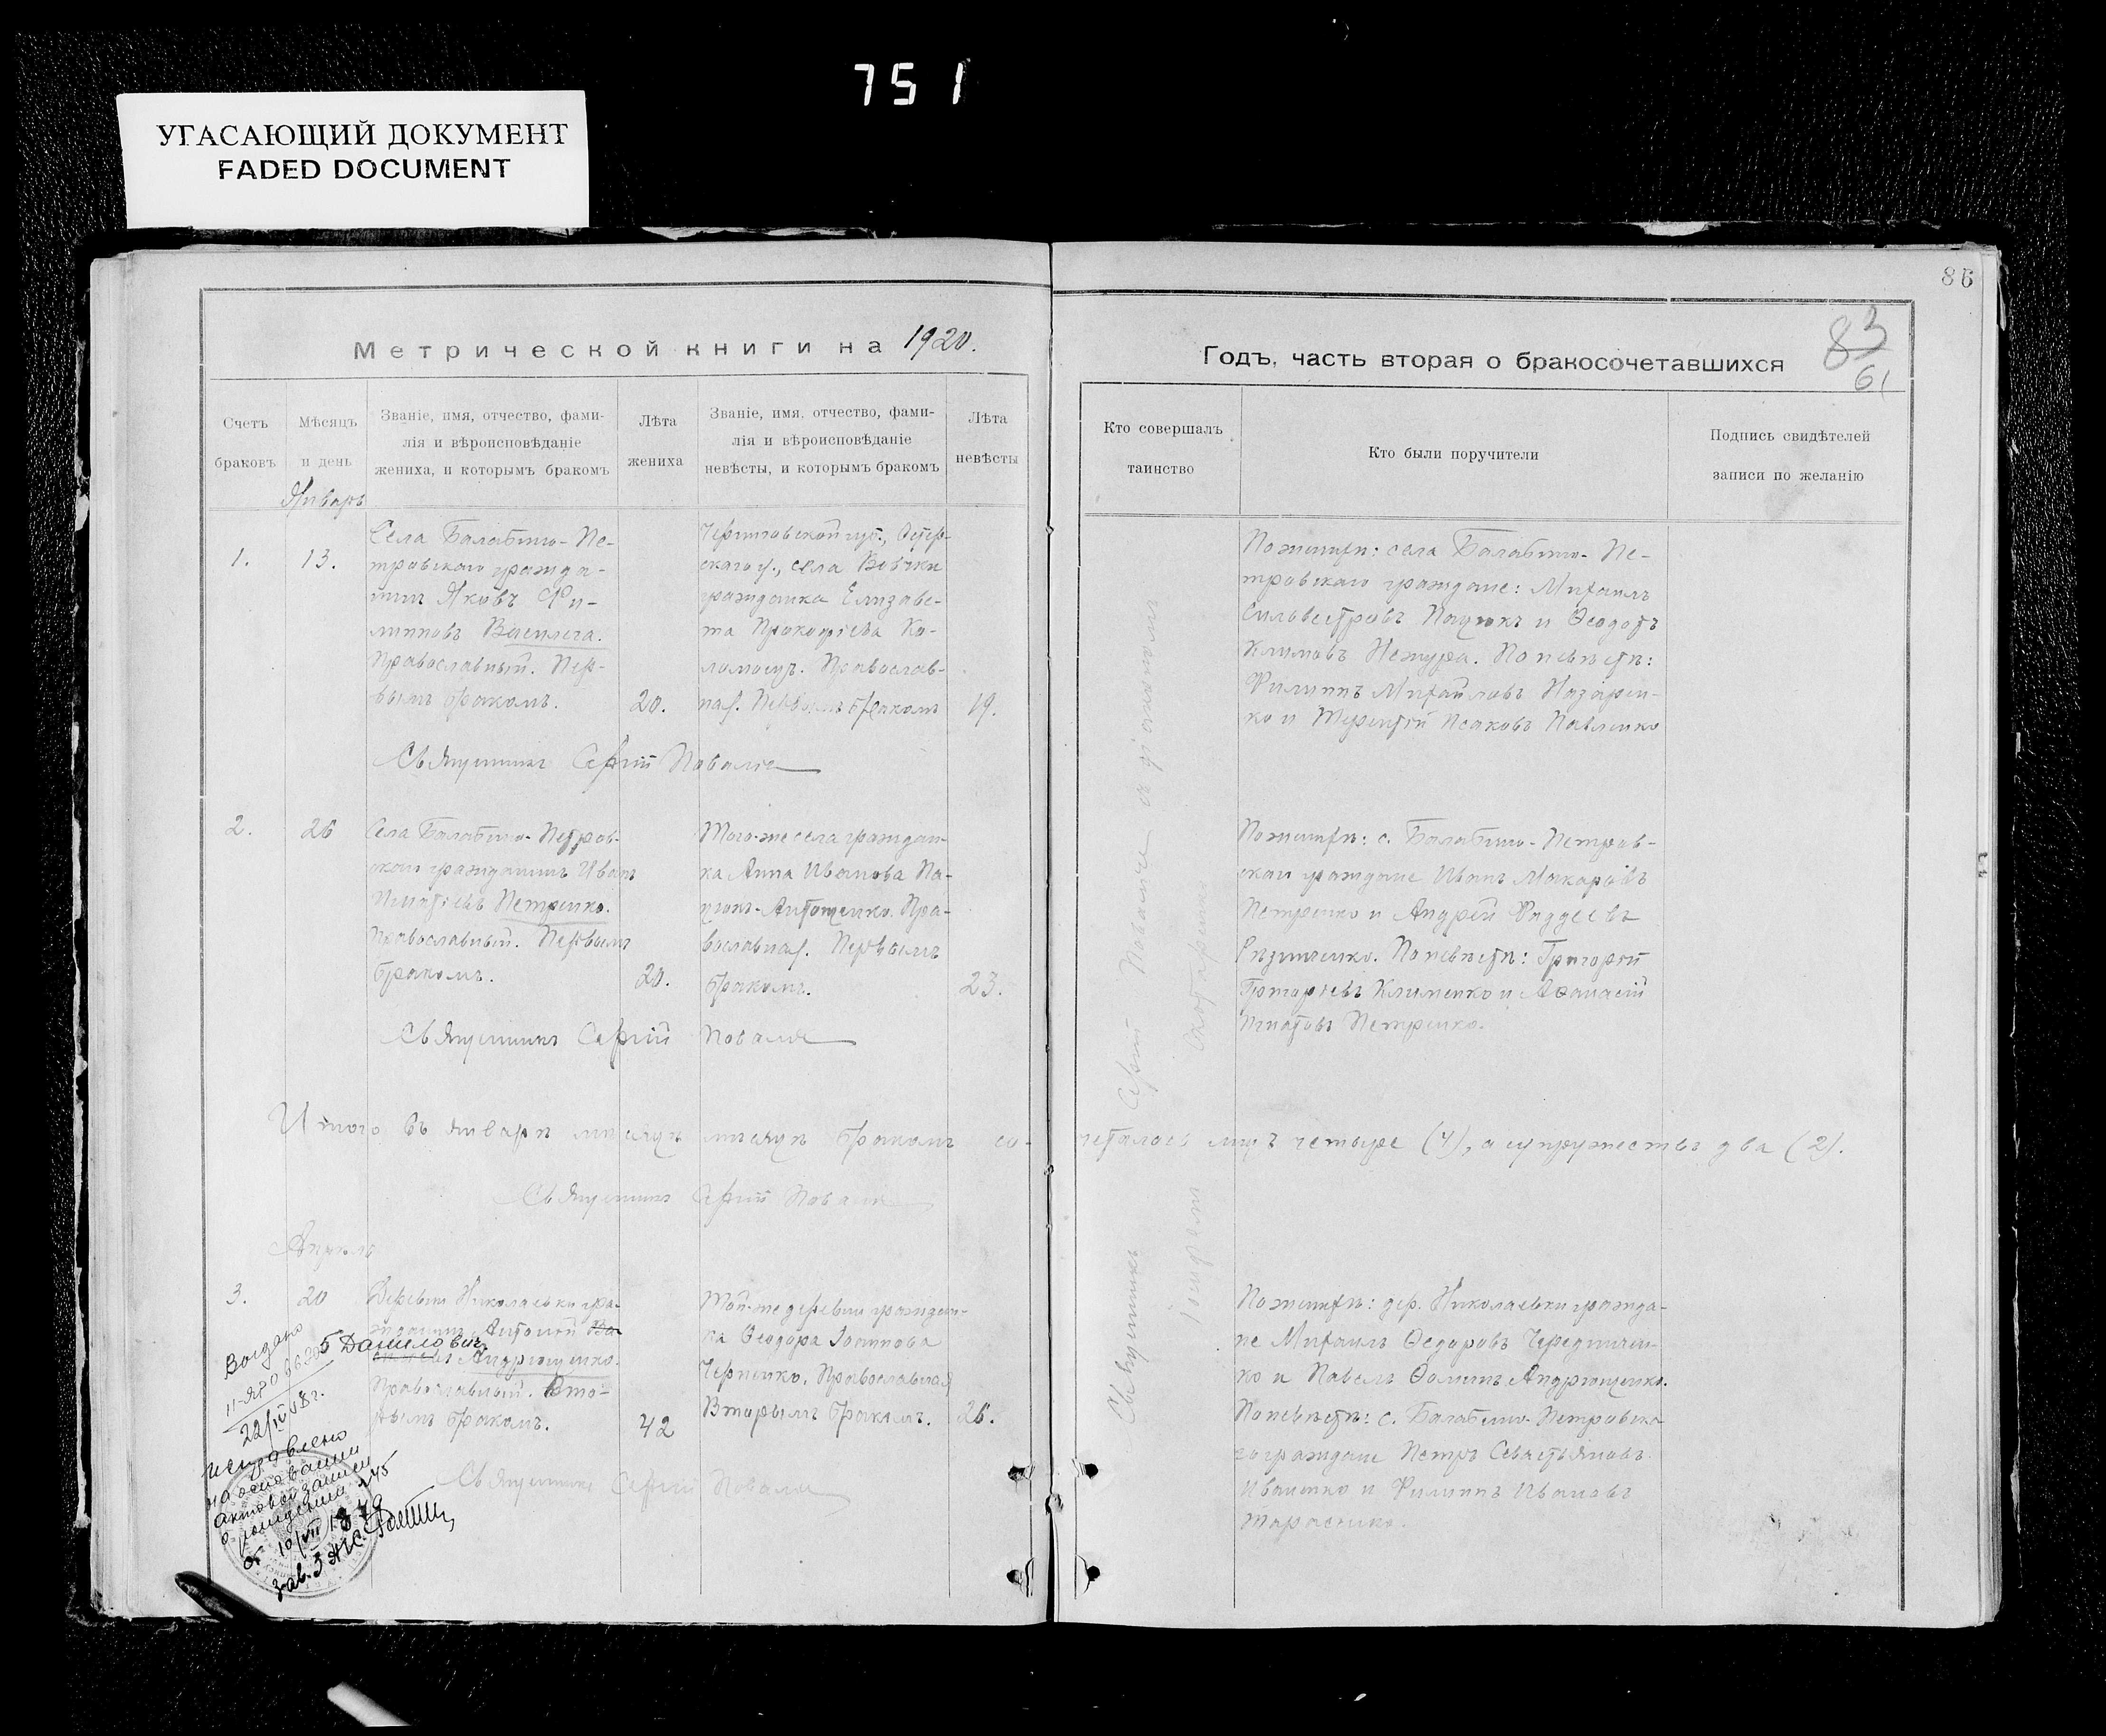 751
УГАСАЮЩИЙ ДОКУМЕНТ
FADED DOCUMENT
86
Метрической книги на 1920.
Годъ, часть вторая о бракосочетавшихся
83
61
Счетъ браковъ
Мѣсяцъ и день
Званіе, имя, отчество, фами-
лія и вѣроисповѣданіе
жениха, и которымъ бракомъ
Лѣта жениха
Званіе, имя, отчество, фами-
лія и вѣроисповѣданіе
невѣсты, и которымъ бракомъ
Лѣта невѣсты
Кто совершалъ таинство
Кто были поручители
Подпись свидѣтелей
записи по желанію
Январь
1.
13.
Села Балабино-Пе-
тровскаго гражда-
нинъ Яковъ Фи-
липповъ
Православный. Пер-
вымъ бракомъ.
20.
Черниговской губ., Остер-
скаго у., села
гражданка Елизаве-
та Прокофіева Ко-
ломоецъ. Православ-
ная. Первымъ бракомъ
19.
По женихѣ: села Балабино-Пе-
тровскаго граждане: Михаилъ
Сильвестровъ Пацюкъ и Ѳеодотъ
Климовъ По невѣстѣ:
Филиппъ Михайловъ Назарен-
ко и Терентій Исаковъ Павленко
Священникъ Сергій Поваля
2.
26
Села Балабино-Петров-
скаго гражданинъ Иванъ
Игнатіевъ Петренко.
Православный. Первымъ
бракомъ.
20.
Того-же села граждан-
ка Анна Иванова Па-
цюкъ-Антощенко. Пра-
вославная. Первымъ
бракомъ.
23.
По женихѣ: с. Балабино-Петров-
скаго граждане Иванъ Макаровъ
Петренко и Андрей Фаддеевъ
Рѣзниченко. По невѣстѣ: Григорій
Григорьевъ Клименко и Аѳанасій
Игнатовъ Петренко.
Священникъ Сергій Поваля
Итого въ январѣ мѣсяцѣ мѣсяцѣ бракомъ со-
четалось лицъ четыре (4), а супружествъ два (2).
Священникъ Сергій Поваля
Апрѣль
3.
20
Деревни Николаевки гра-
жданинъ Антоній Да
Даниловичъ
Андрющенко.
Православный. Вто-
рымъ бракомъ.
42
Той-же деревни граждан-
ка Ѳеодора
Черненко. Православная
Вторымъ бракомъ.
26.
По женихѣ: дер. Николаевки гражда-
не Михаилъ Ѳедоровъ Чередничен-
ко и Павелъ Ѳоминъ Андрющенко.
По невѣстѣ: с. Балабино-Петровска-
го граждане Петръ Севастьяновъ
Иваненко и Филиппъ Ивановъ
Тарасенко.
Священникъ Сергій Поваля
Священникъ Сергій Поваля съ діакономъ
Выдано
II-ЯЮ
исправлено
на основании
актовой записи
о рождении 145